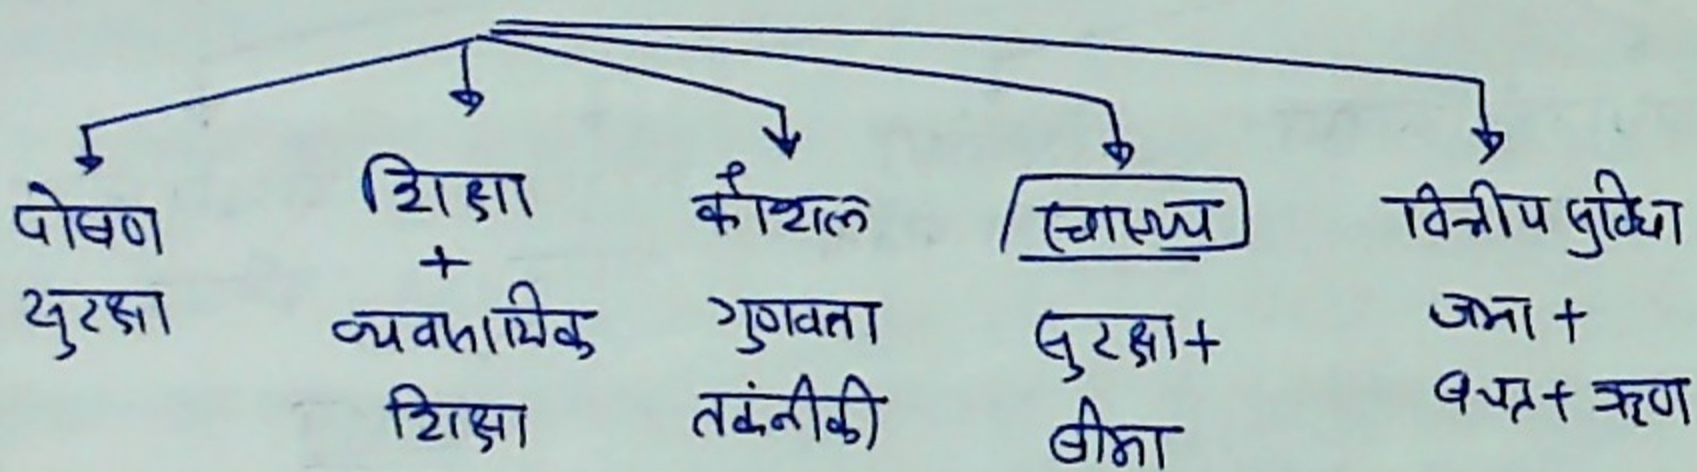 पोषण
सुरक्षा
शिक्षा
+
व्यवसायिक
शिक्षा
कौशल
गुणवता
तकंनीकी
स्वास्थ्य
सुरक्षा +
बीमा
वित्तीय सुविधा
जमा +
बचत + ऋण